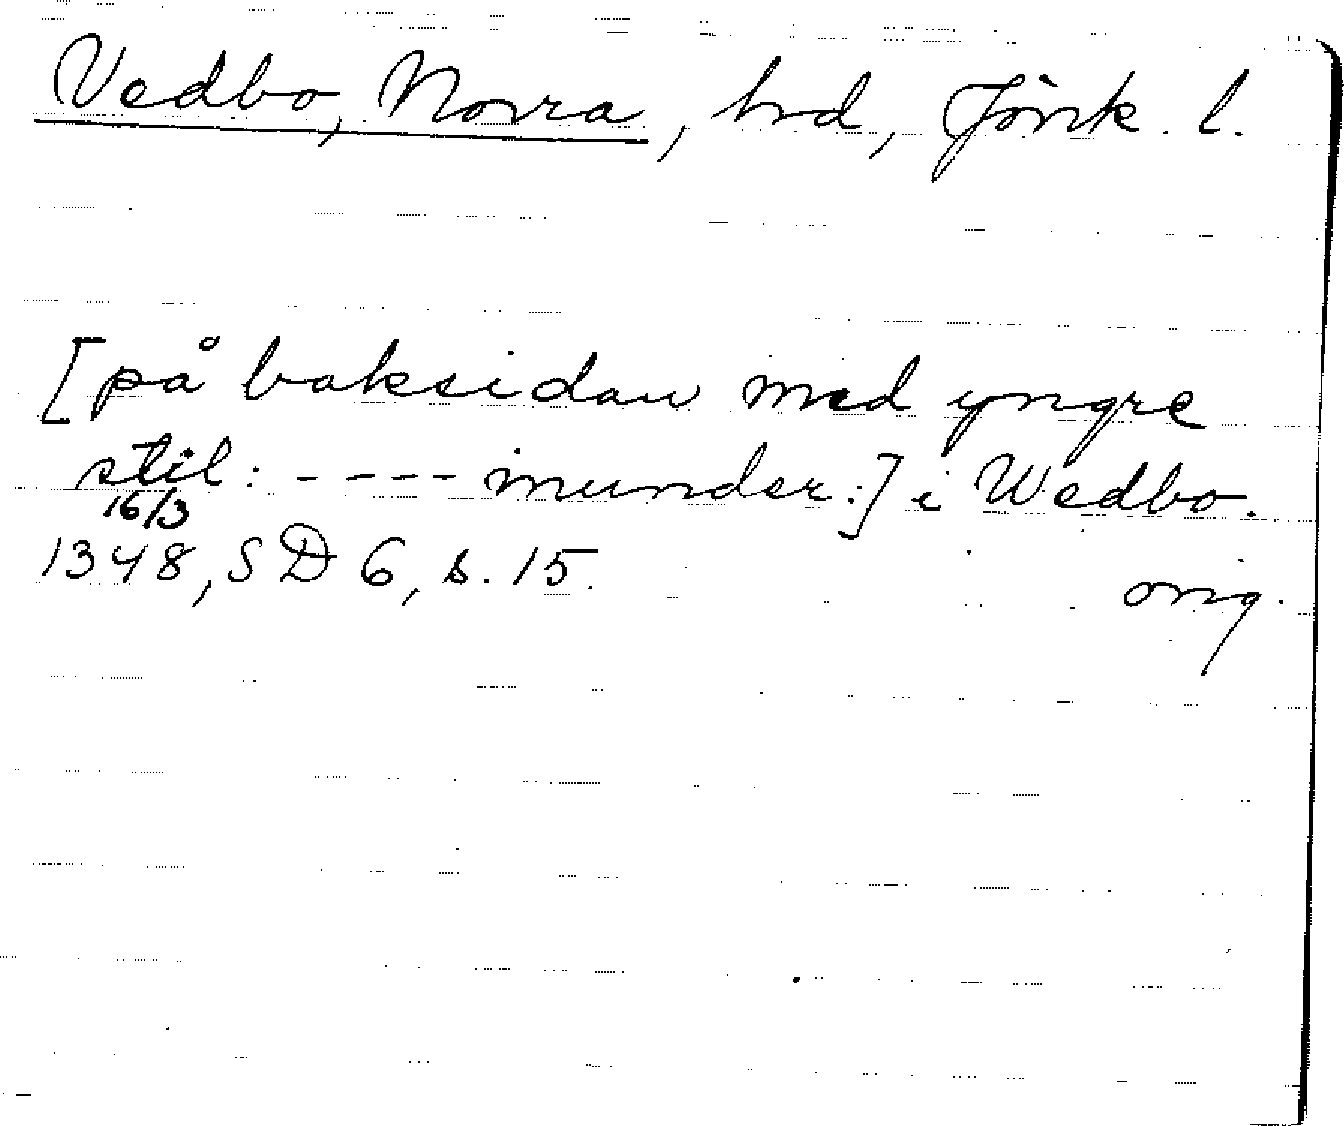 Vedbo, Norra, hrd, Jönk. l.
[på baksidan med yngre
stil: - - - - munder:] i Wedbo.
16/3
1348, SD 6, s. 15.
orig.